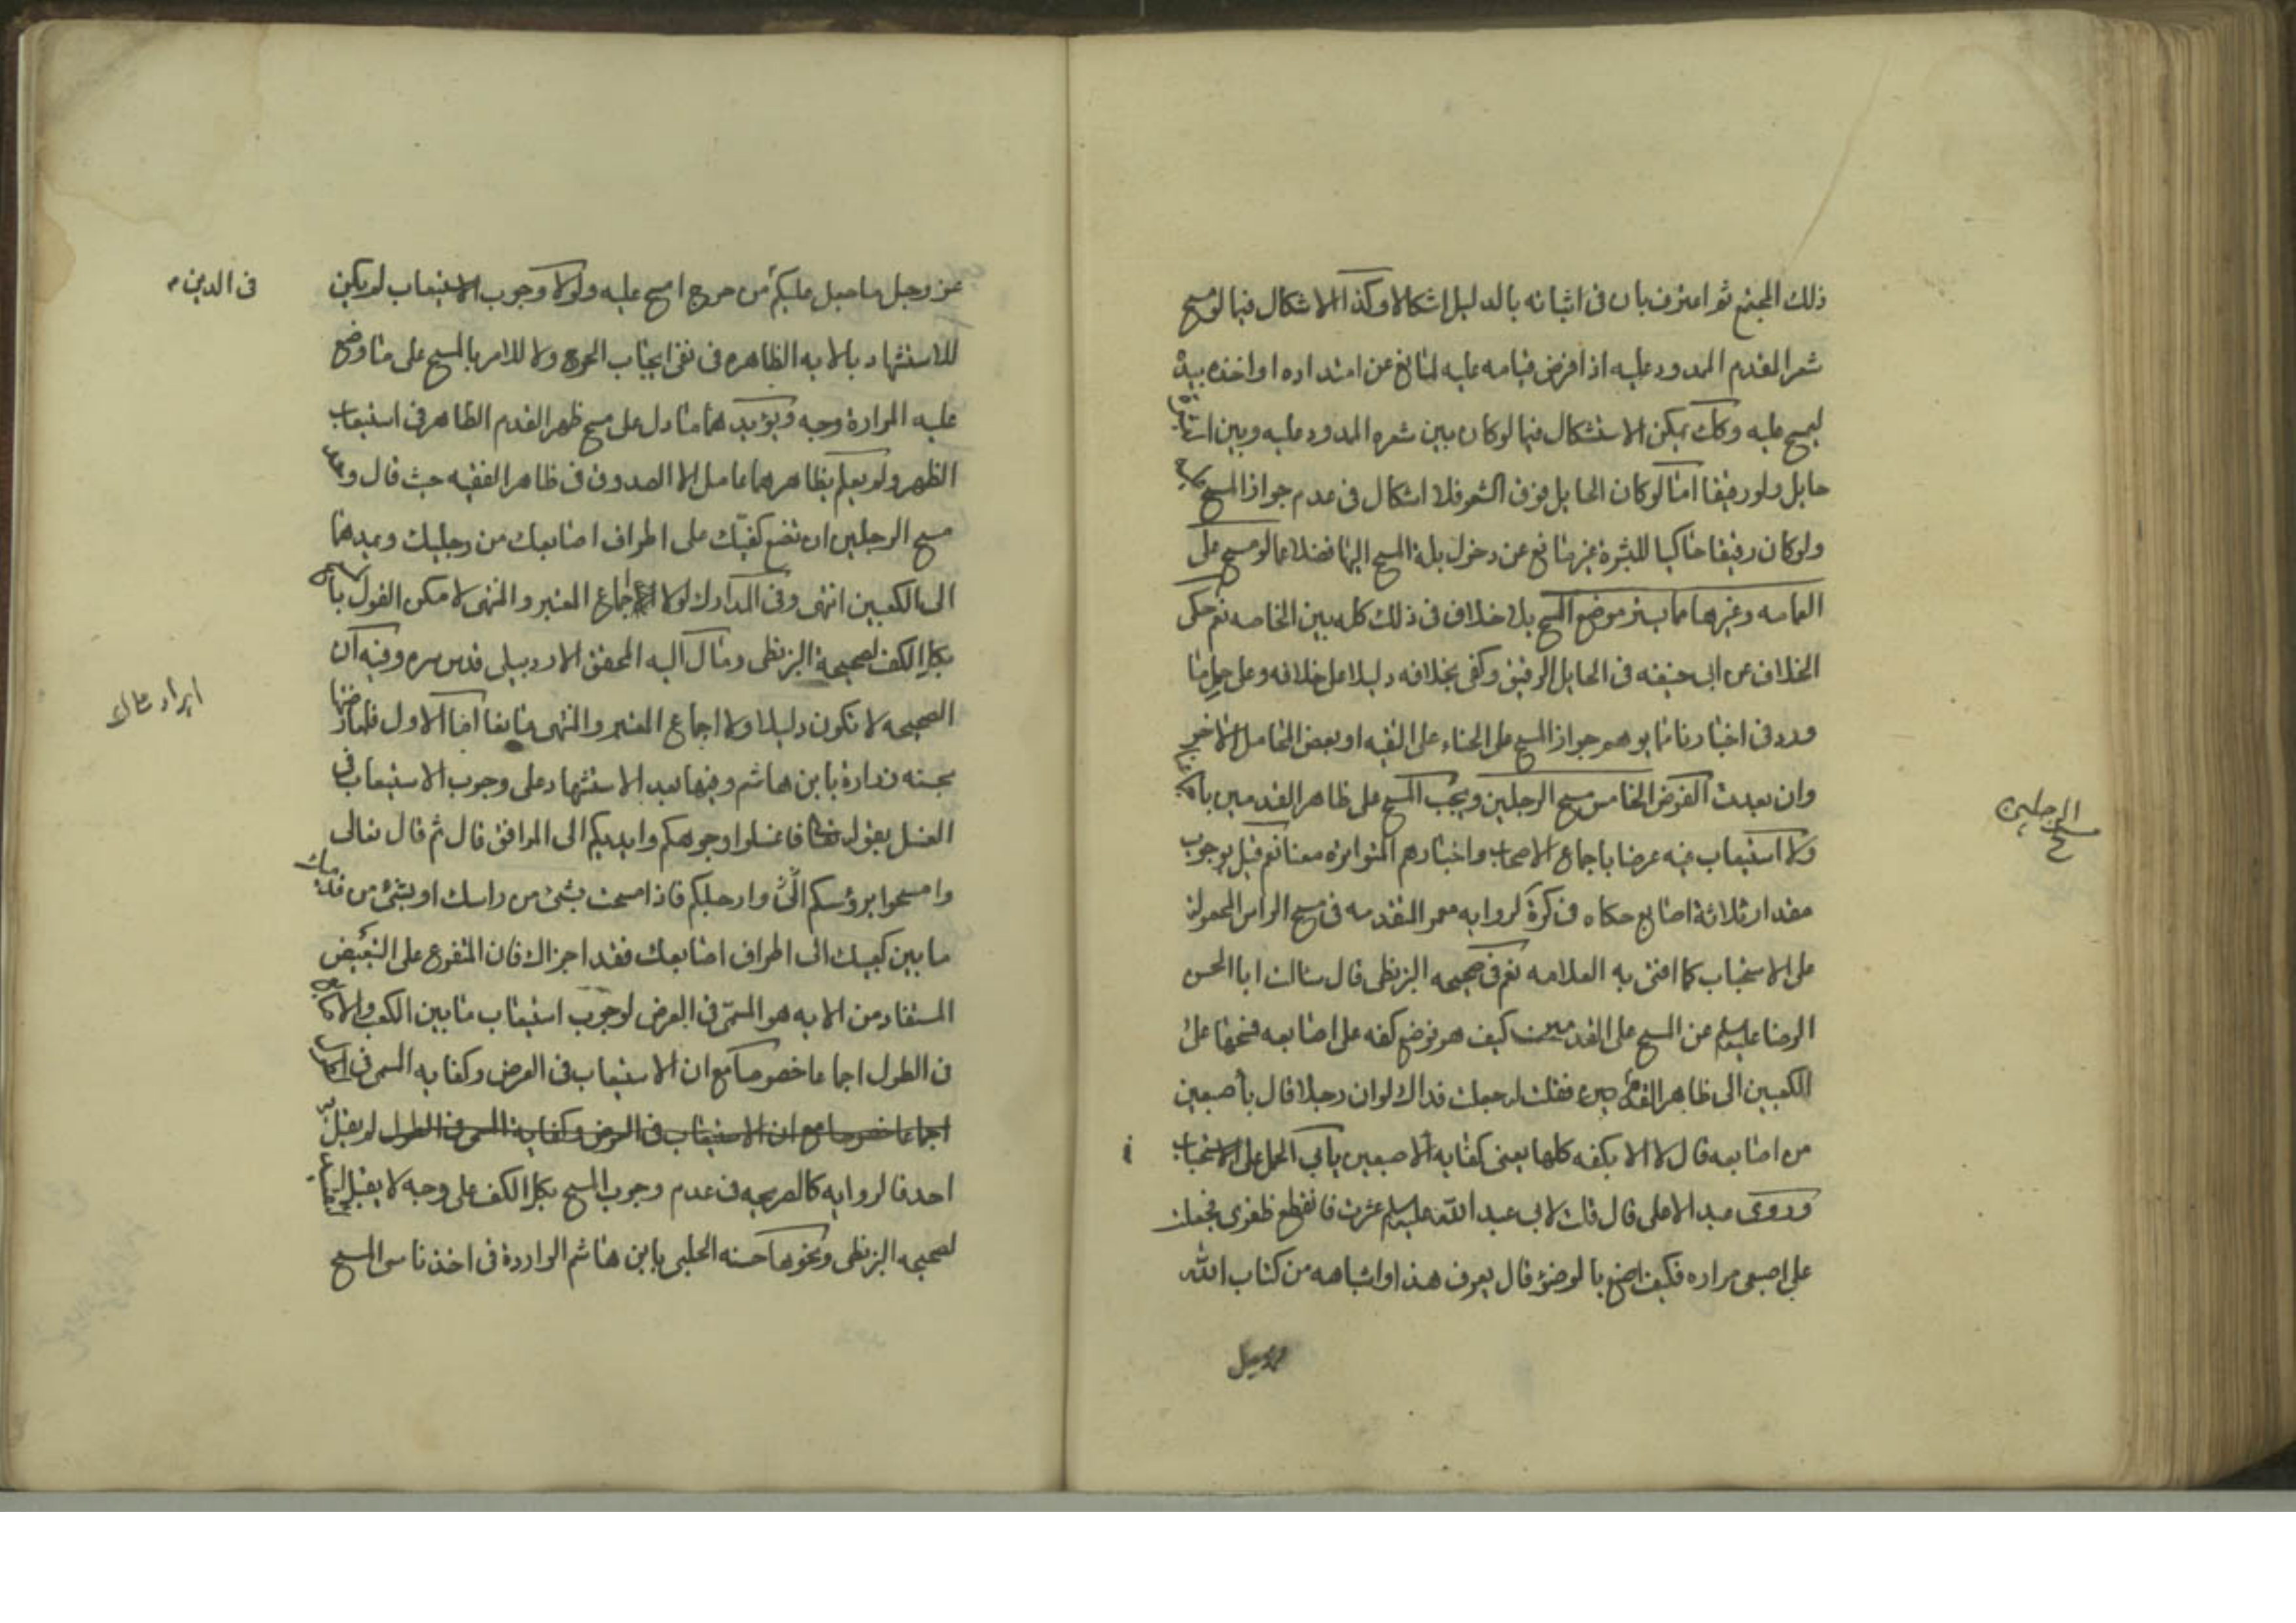 ذلك المجتمع ثم اعترف بان في اثباته بالدليل اشكالا وكذا الاشكال فيما لو مسح
شعر المقدم الممدود عليه اذا فرض قيامه عليه لمانع عن امتداده او اخذه بيده
ليمسح عليه وكك يمكن الاستشكال فيما لو كان بين شعره الممدود عليه وبين
حايل ولو رقيقا امّا لو كان الحايل فوق الشعر فلا اشكال في عدم جواز المسح عليه
ولو كان رقيقا حاكيا للبشرة غير مانع عن دخول بلة المسح اليها فضلا عما لو مسح على
العمامه وغيرها مما يستر موضع المسح بلا خلاف في ذلك كله بين الخاصه نعم حكى
الخلاف عن ابى حنيفه في الحايل الرقيق وكفى بخلافه دليلا على خلافه وعلى حمل ما
ورد في اخبارنا مما يوهم جواز المسح على الحناء على التقيه او بعض المحامل الاخر
وان بعدت الفرض الخامس مسح الرجلين ويجب المسح على ظاهر القدمين
ولا استيعاب فيه عرضا باجماع الاصحاب واخبارهم المتواترة معنا نعم قيل بوجوب
مقدار ثلاثة اصابع حكاه في كرة لروايه معمر المتقدمه في مسح الراس المحمولة
على الاستحباب كما افتى به العلامه نعم في صحيحه البزنطى قال سالت ابا الحسن
الرضا عليه السلم عن المسح على القدمين كيف هو فوضع كفه على اصابعه فمسحها على
الكعبين الى ظاهر القدمين فقلت له جعلت فداك لو ان رجلا قال باصبعين
من اصابعه قال لا الا بكفه كلها يعنى كفايه الاصبعين يابى الحمل على الاستحباب
وروى عبد الاعلى قال قلت لابى عبد الله عليه السلم عثرت فانقطع ظفرى فجعلت
على اصبعى مراره فكيف اصنع بالوضوء قال يعرف هذا واشباهه من كتاب الله
مسح الرجلين
عز وجل ما جعل عليكم من حرج امسح عليه ولولا وجوب الاستيعاب لم يكن
في الدين
للاستشهاد بالايه الظاهره في نفى ايجاب الحرج ولا للامر بالمسح على ما وضع
عليه المرارة وجه ويؤيدهما ما دل على مسح ظهر القدم الظاهر في استيعاب
الظهر ولم يعلم بظاهرهما عامل الا الصدوق في ظاهر الفقيه حيث قال وحد
مسح الرجلين ان تضع كفيك على اطراف اصابعك من رجليك وتمدهما
الى الكعبين انتهى وفى المدارك لولا اجماع المعتبر والمنتهى لامكن القول
بكل الكف لصحيحة البزنطى ومال اليه المحقق الاردبيلى قدس سره وفيه ان
الصحيحه لا تكون دليلا ولا اجماع المعتبر والمنتهى مانعا امّا الاول فلمعارضتها
ايراد على ك
بحسنه زرارة بابن هاشم وفيها بعد الاستشهاد على وجوب الاستيعاب في
الغسل بقوله تعالى فاغسلوا وجوهكم وايديكم الى المرافق قال ثم قال تعالى
وامسحوا برؤسكم وارجلكم فاذا مسحت بشئ من راسك او بشئ من قدميك
ما بين كعبيك الى اطراف اصابعك فقد اجزاك فان المتفرع على التبعيض
المستفاد من الايه هو المسمّى في العرض لوجوب استيعاب ما بين الكعب والاصابع
في الطول اجماعا خصوصا مع ان الاستيعاب في العرض وكفايه المسمى في
اجماعا خصوصا مع ان الاستيعاب في العرض وكفاية المسمى في الطول لم يقل به
احد فالروايه كالصريحه في عدم وجوب المسح بكل الكف على وجه لا يقبل
لصحيحه البزنطى ونحوها حسنه الحلبى بابن هاشم الواردة في اخذ ناسى المسح